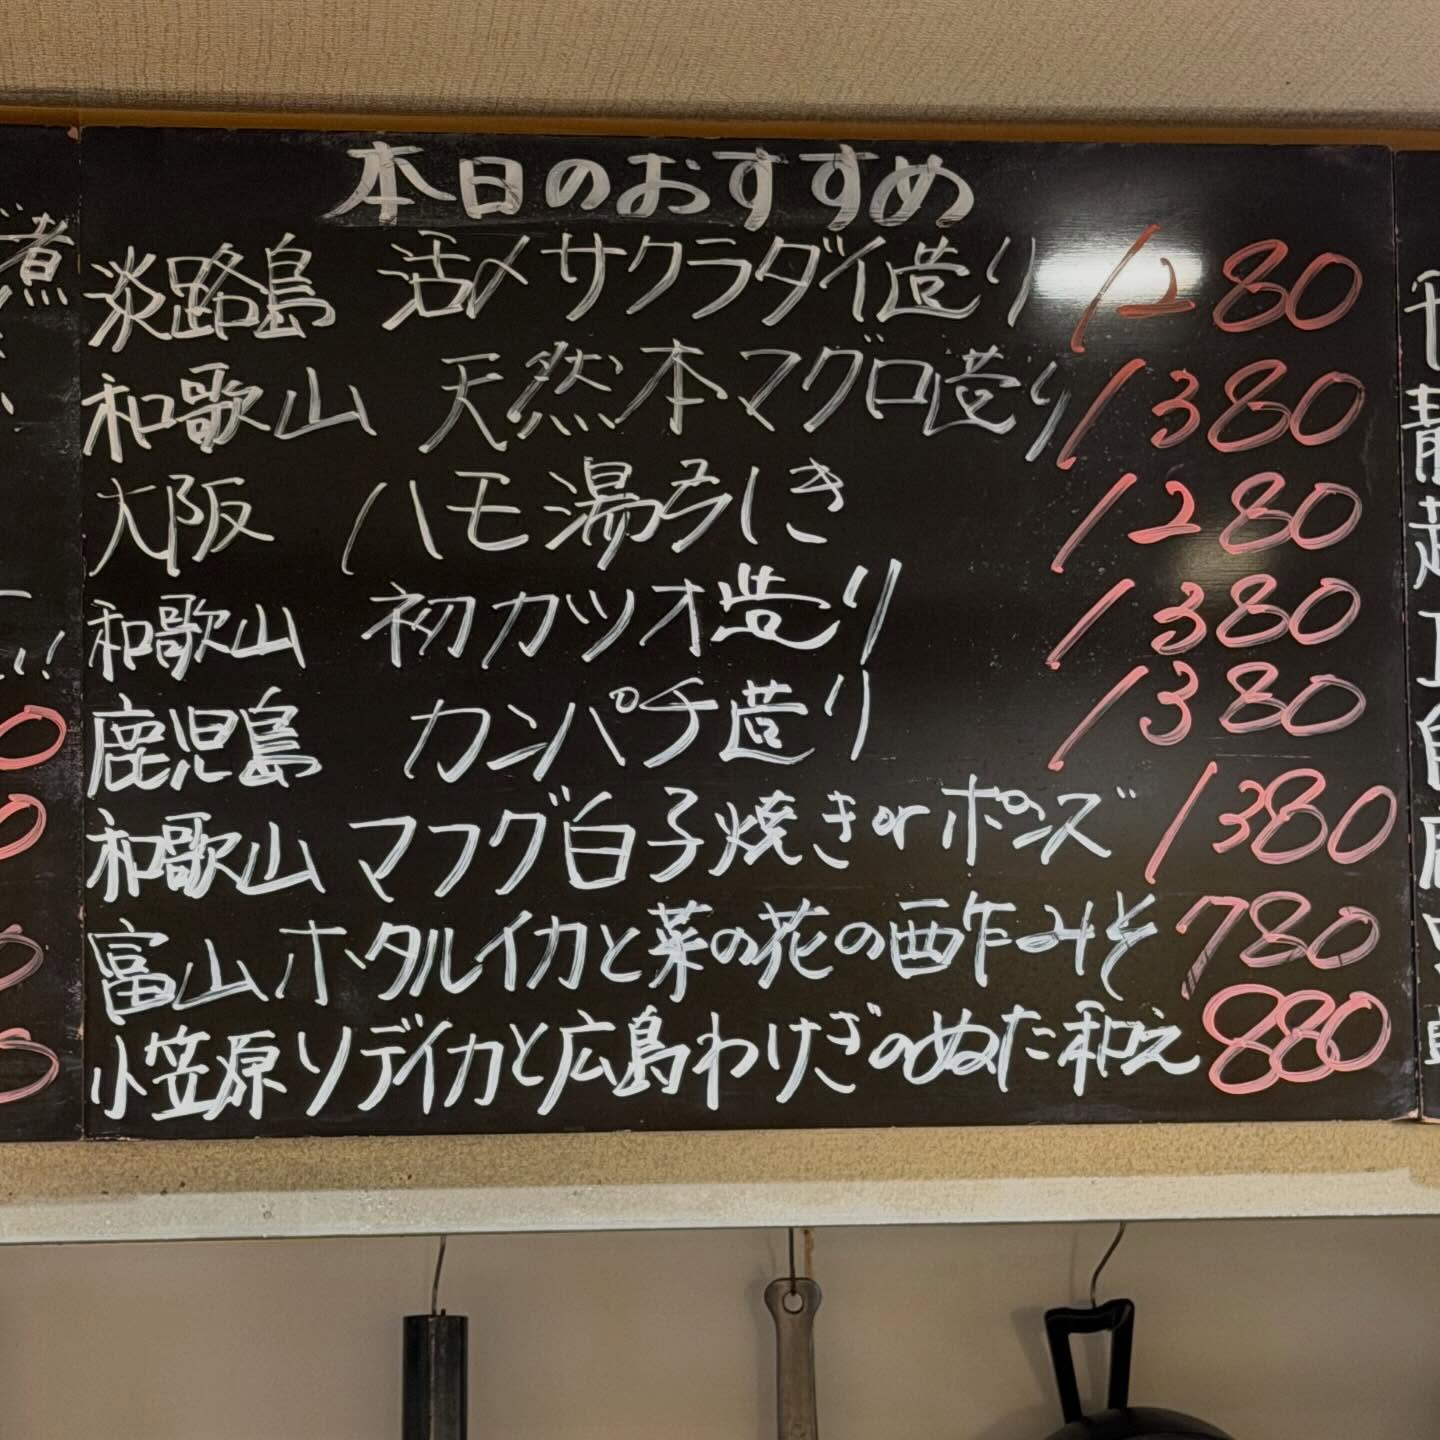 本日のおすすめ
淡路島 活〆サクラダイ造り 1280
和歌山 天然本マグロ造り 1380
大阪 ハモ湯引き 1280
和歌山 初カツオ造り 1380
鹿児島 カンパチ造り 1380
和歌山 マフグ白子焼きorポンズ 1380
富山 ホタルイカと菜の花の酢みそ 780
小笠原ソデイカと広島わけぎのぬた和え 880